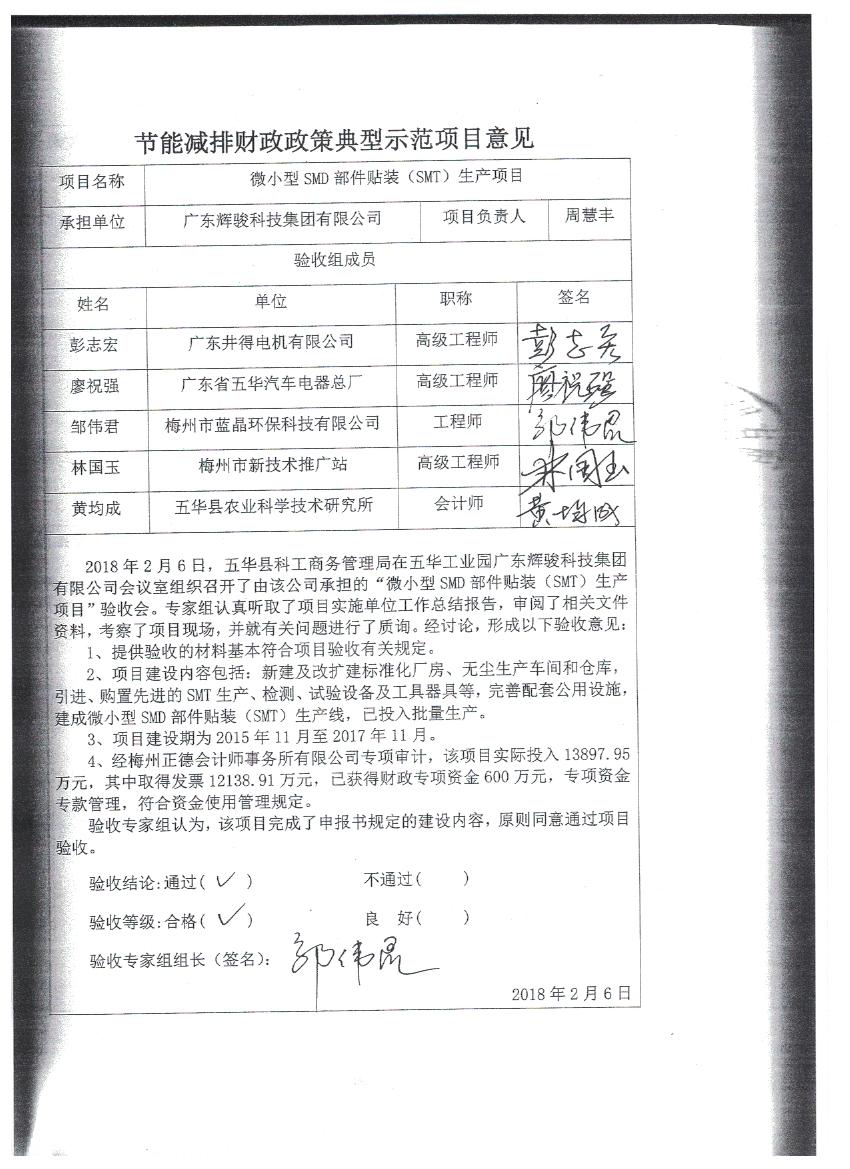 节能减排财政政策典型示范项目意见
项目名称 微小型 SMD 部件贴装（SMT）生产项目
承担单位 广东辉骏科技集团有限公司 项目负责人 周慧丰
验收组成员
姓名 单位 职称 签名
彭志宏 广东井得电机有限公司 高级工程师 彭志宏
廖祝强 广东省五华汽车电器总厂 高级工程师 廖祝强
邹伟君 梅州市蓝晶环保科技有限公司 工程师
林国玉 梅州市新技术推广站 高级工程师 林国玉
黄均成 五华县农业科学技术研究所 会计师 黄均成
2018 年 2 月 6 日，五华县科工商务管理局在五华工业园广东辉骏科技集团
有限公司会议室组织召开了由该公司承担的“微小型 SMD 部件贴装（SMT）生产
项目”验收会。专家组认真听取了项目实施单位工作总结报告，审阅了相关文件
资料，考察了项目现场，并就有关问题进行了质询。经讨论，形成以下验收意见：
1、提供验收的材料基本符合项目验收有关规定。
2、项目建设内容包括：新建及改扩建标准化厂房、无尘生产车间和仓库，
引进、购置先进的 SMT 生产、检测、试验设备及工具器具等，完善配套公用设施，
建成微小型 SMD 部件贴装（SMT）生产线，已投入批量生产。
3、项目建设期为 2015 年 11 月至 2017 年 11 月。
4、经梅州正德会计师事务所有限公司专项审计，该项目实际投入 13897.95
万元，其中取得发票 12138.91 万元，已获得财政专项资金 600 万元，专项资金
专款管理，符合资金使用管理规定。
验收专家组认为，该项目完成了申报书规定的建设内容，原则同意通过项目
验收。
验收结论:通过( ✓ ) 不通过( )
验收等级:合格( ✓ ) 良 好( )
验收专家组组长（签名）:
2018 年 2 月 6 日